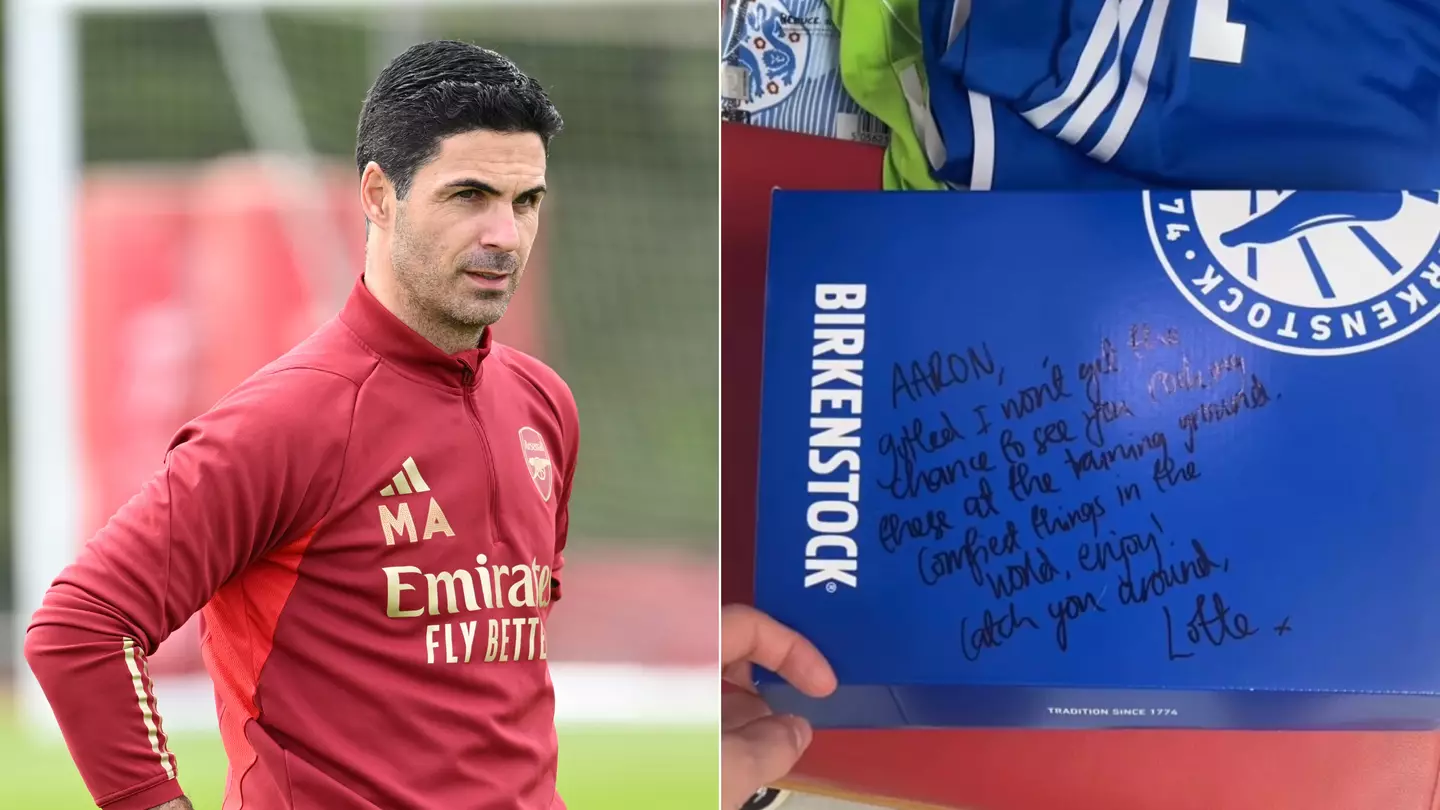 Arsenal
MA
Emirates
FLY BETTE
BIRKENSTOCK
74
BIRKENSTOCK
AARON,
gutted I won't get the
chance to see you rocking
these at the training ground.
Comfiest things in the
world, enjoy!
Catch you around,
Lotte x
TRADITION SINCE 1774